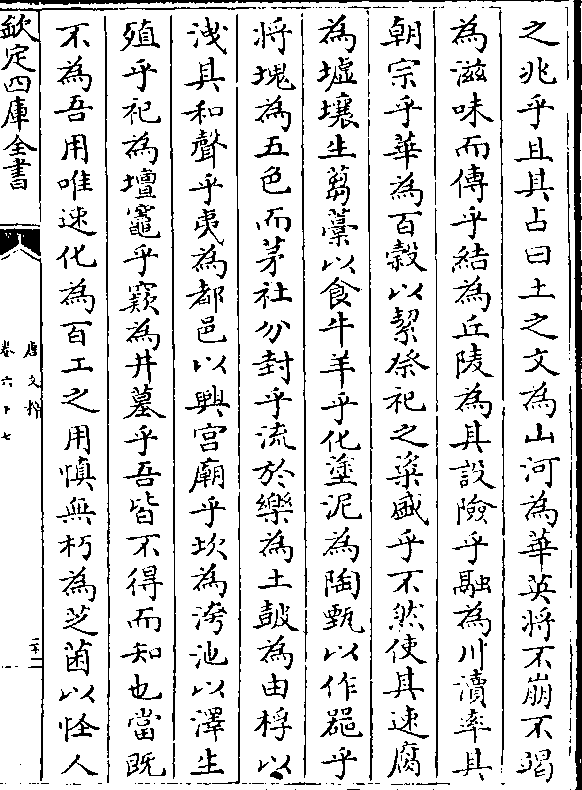 之兆乎且其占曰土之文為山河為華英将不崩不竭
為滋味而傳乎結為丘陵為其設險乎融為川瀆率其
朝宗乎華為百穀以絜祭祀之粢盛乎不然使其速腐
為墟壤生蒭藁以食牛羊乎化塗泥為陶甄以作噐乎
将塊為五色而茅社分封乎流於樂為土鼔為由桴以
洩其和聲乎夷為都邑以興宫廟乎坎為洿池以澤生
殖乎祀為壇竈乎窾為井墓乎吾皆不得而知也當既
不為吾用唯速化為百工之用慎無朽為芝菌以怪人
欽定四庫全書
唐文粹
卷六十七